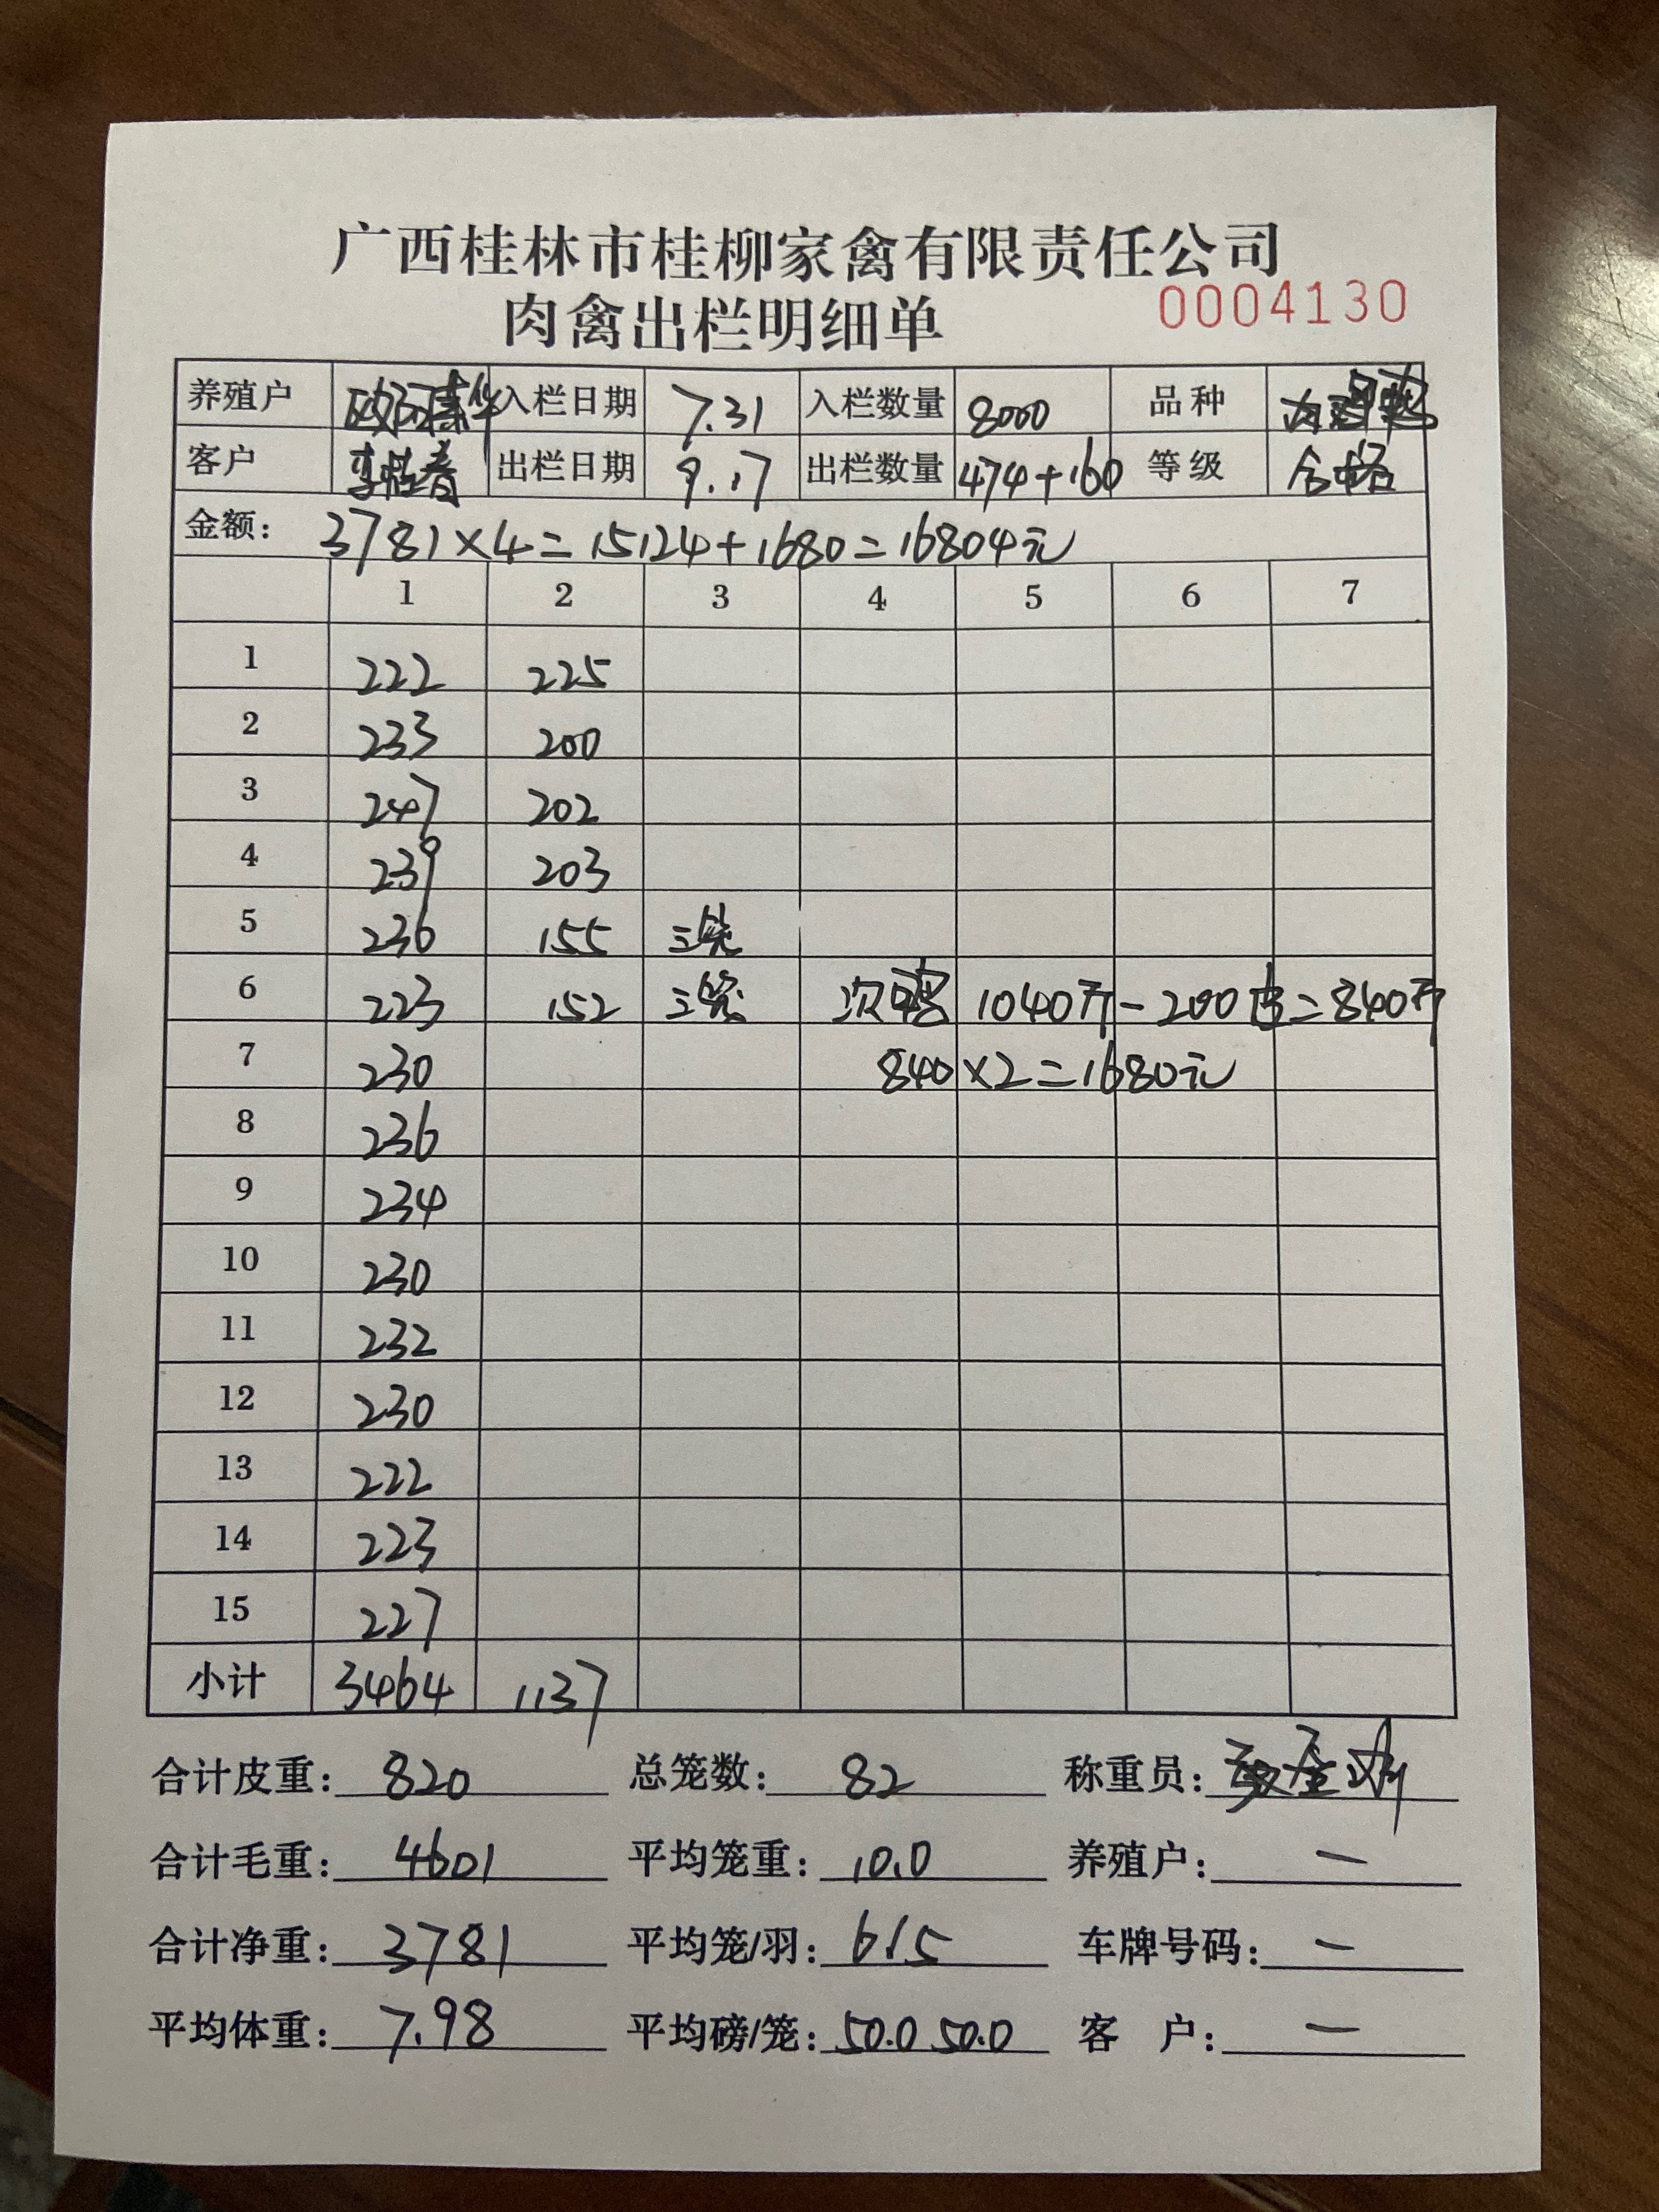 广西桂林市桂柳家禽有限责任公司
肉禽出栏明细单 0004130
养殖户 入栏日期 7.31 入栏数量 8000 品种
客户 出栏日期 9.17 出栏数量 474+160 等级 合格
金额: 3781×4=15124+1680=16804元
1 2 3 4 5 6 7
1 222 225
2 233 200
3 247 202
4 239 203
5 236 155 三笼
6 223 152 三笼 次鸭 1040斤-200皮=840斤
7 230 840×2=1680元
8 236
9 234
10 230
11 232
12 230
13 222
14 223
15 227
小计 3464 1137
合计皮重: 820 总笼数: 82 称重员:
合计毛重: 4601 平均笼重: 10.0 养殖户: —
合计净重: 3781 平均笼/羽: 6/5 车牌号码: —
平均体重: 7.98 平均磅/笼: 50.0 50.0 客 户: —